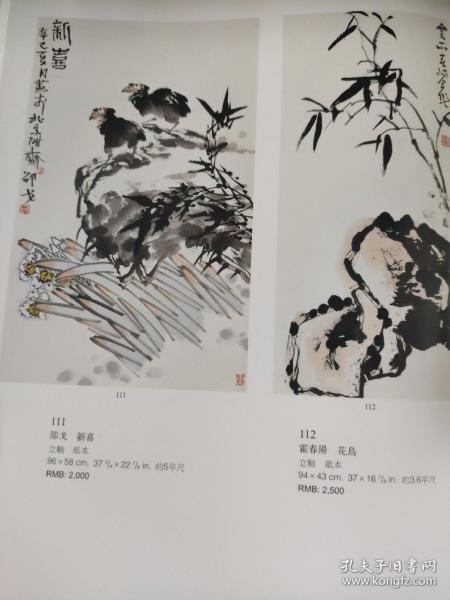 新喜
辛巳夏月畫於北京
邵戈
111
112
111
邵戈 新喜
立軸 紙本
96×58 cm. 37 3/4×22 7/8 in. 約5平尺
RMB: 2,000
112
霍春陽 花鳥
立軸 紙本
94×43 cm. 37×16 7/8 in. 約3.6平尺
RMB: 2,500
孔夫子旧书网
www.kongfz.com